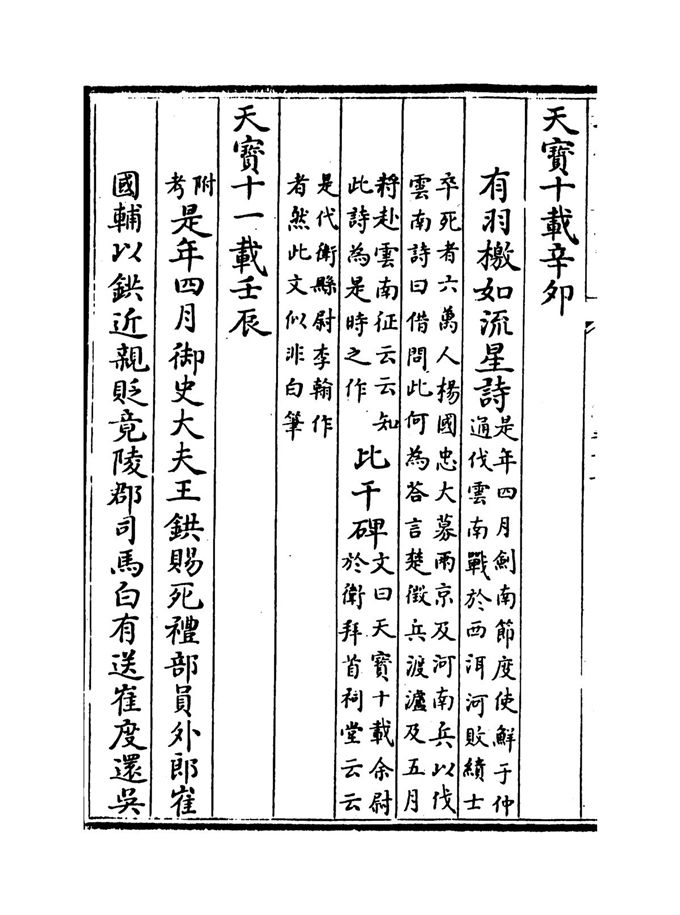 天寳十載辛卯
有羽檄如流星詩是年四月劍南節度使鮮于仲
通伐雲南戰於西洱河敗績士
卒死者六萬人楊國忠大募兩京及河南兵以伐
雲南詩曰借問此何為荅言楚徴兵渡瀘及五月
將赴雲南征云云知
此詩為是時之作
比干碑文曰天寳十載余尉
於衛拜首祠堂云云
是代衛縣尉李翰作
者然此文似非白筆
天寳十一載壬辰
附考是年四月御史大夫王鉷賜死禮部員外郎崔
國輔以鉷近親貶竟陵郡司馬白有送崔度還吳